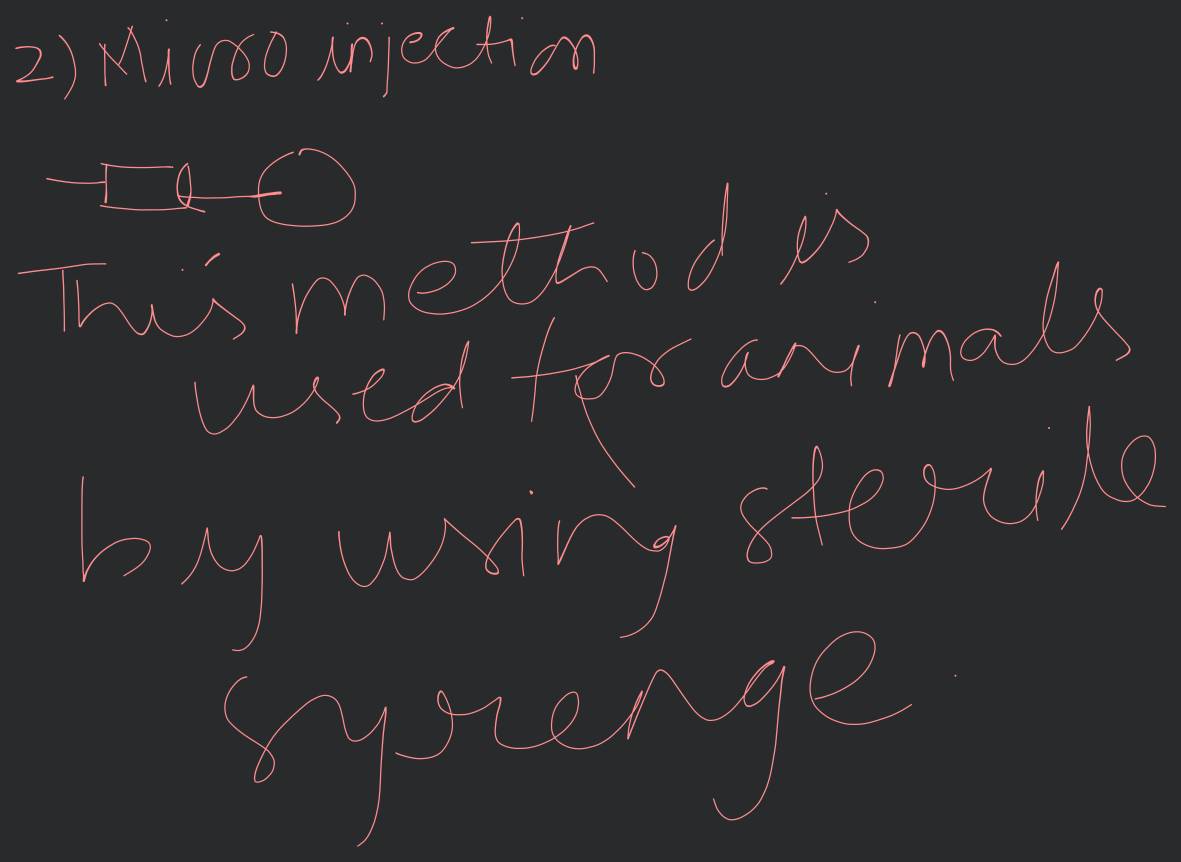 2) Micro injection
This method is
used for animals
by using sterile
syrenge.